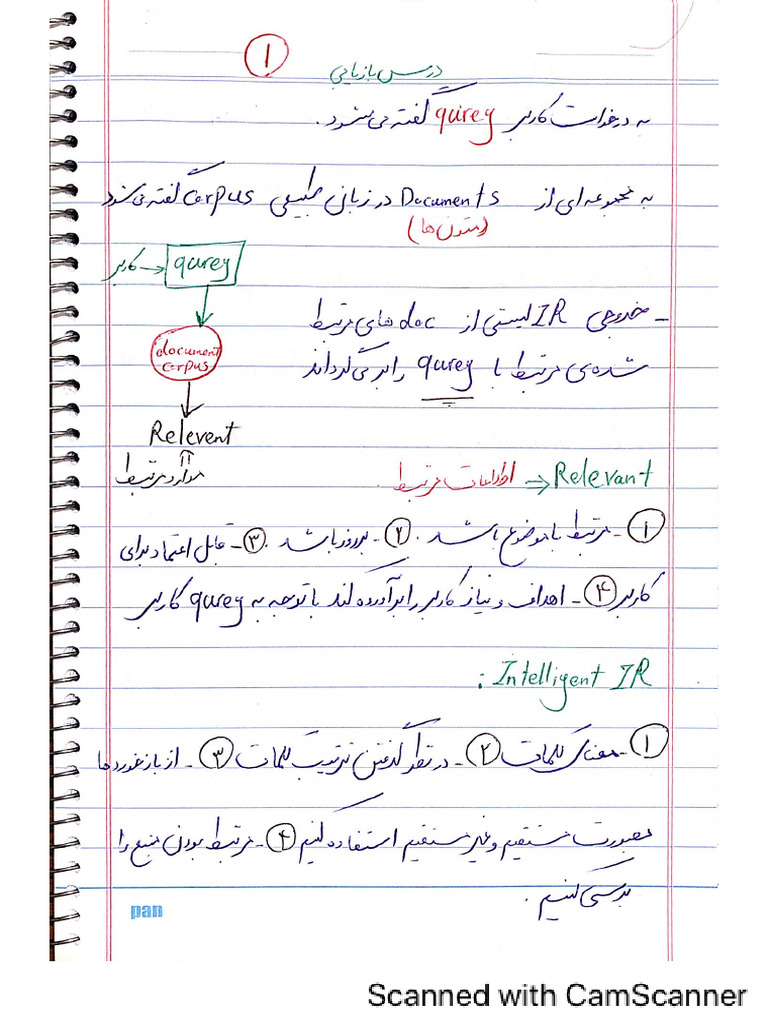 ۱
درس بازیابی
به درخواست کاربر qurey گفته می‌شود.
به مجموعه‌ای از Documents در زبانی طبیعی Corpus گفته می‌شود
(متون‌ها)
qurey ← کاربر
document
corpus
Relevent
موارد مرتبط
- خروجی IR لیستی از doc های مرتبط
شده‌ی مرتبط با qurey را برمی‌گرداند
Relevant ⇒ اطلاعات مرتبط
۱- مرتبط با موضوع باشد. ۲- بروز باشد. ۳- قابل اعتماد برای
کاربر ۴- اهداف و نیاز کاربر را برآورده کند با توجه به qurey کاربر
Intelligent IR :
۱- معنای کلمات ۲- در نظر گرفتن ترتیب کلمات ۳- از بازخوردها
بصورت مستقیم و غیر مستقیم استفاده کنیم ۴- مرتبط بودن منبع را
بررسی کنیم.
pan
Scanned with CamScanner